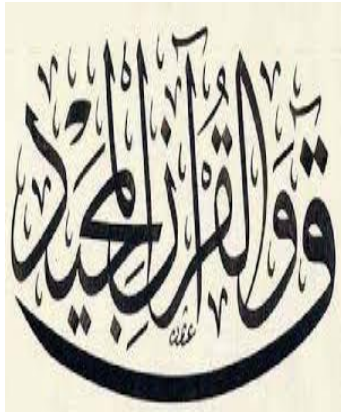 قٓ وَالْقُرْآنِ الْمَجِيدِ